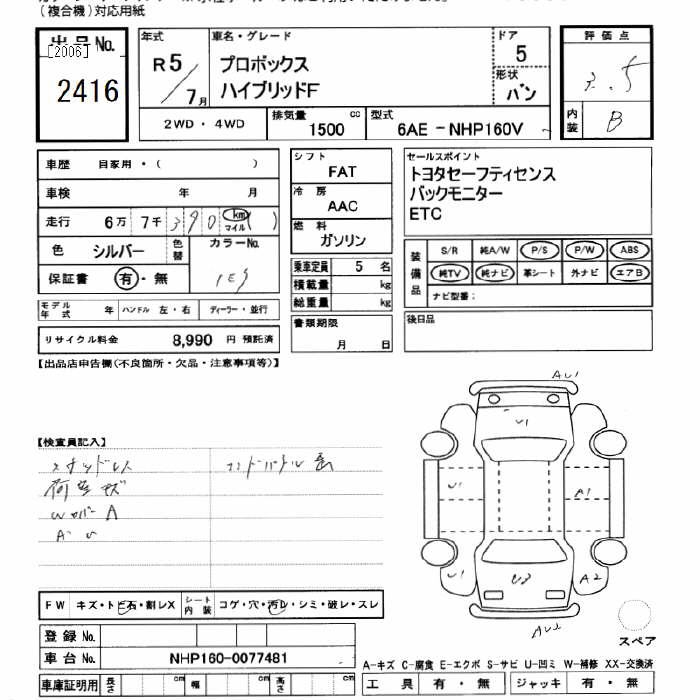 (複合機)対応用紙
出品No.
[2006]
2416
年式
R5/7月
車名・グレード
プロボックス
ハイブリッドF
ドア
5
形状
バン
評価点
3.5
内装
B
2WD・4WD
排気量
1500
cc
型式
6AE-NHP160V
車歴 自家用・( )
車検 年 月
走行 6万 7千 390 km マイル ( )
色 シルバー
色替
カラーNo.
1E9
保証書 有・無
モデル年式 年 ハンドル 左・右 ディーラー・並行
リサイクル料金 8,990円 預託済
シフト
FAT
冷房
AAC
燃料
ガソリン
乗車定員 5 名
積載量 kg
総重量 kg
書類期限
月 日
セールスポイント
トヨタセーフティセンス
バックモニター
ETC
装備品
S/R 純A/W P/S P/W ABS
純TV 純ナビ 革シート 外ナビ エアB
ナビ型番:
後日品
【出品店申告欄(不良箇所・欠品・注意事項等)】
【検査員記入】
スタッドレス
荷室キズ
Wカバー A
A U
AU1
U1
U1
A1
U1
U2
A2
AU2
スペア
FW キズ・トビ石・割レX
シート内装 コゲ・穴・汚レ・シミ・破レ・スレ
登録No.
車台No. NHP160-0077481
車庫証明用 長さ cm 幅 cm 高さ cm
A-キズ C-腐食 E-エクボ S-サビ U-凹ミ W-補修 XX-交換済
工具 有・無 ジャッキ 有・無